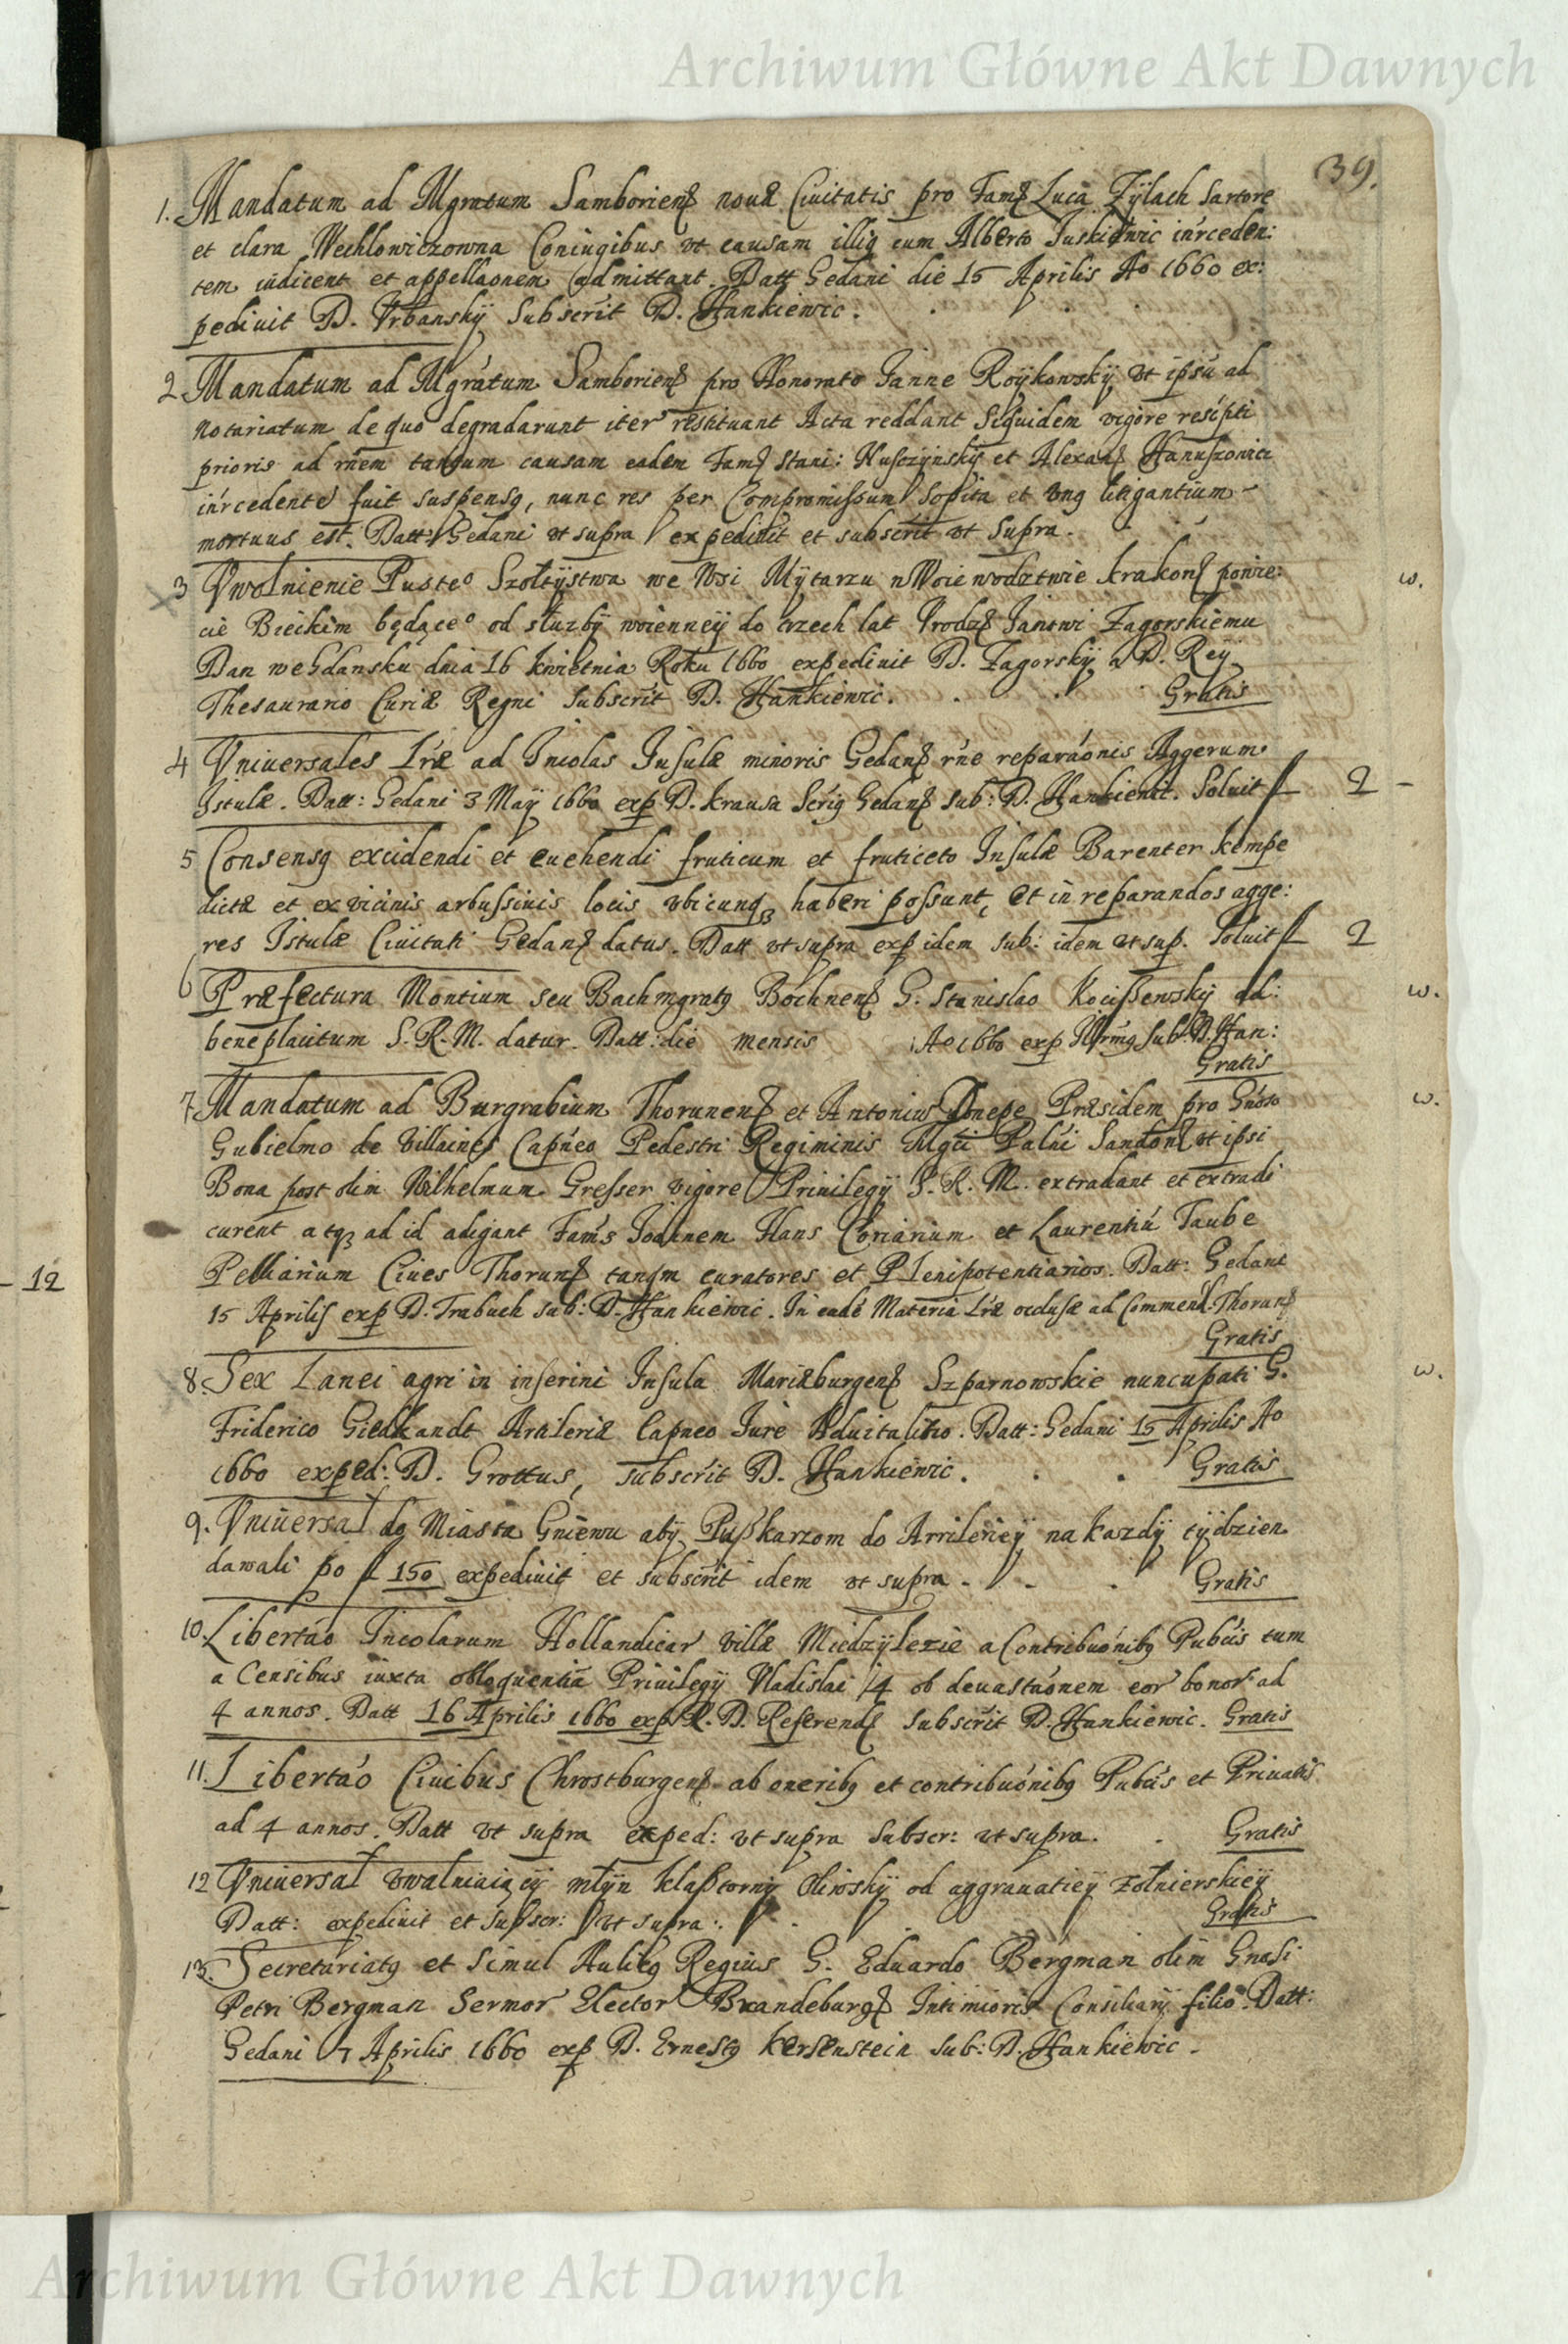 Archiwum Główne Akt Dawnych
39.
1. Mandatum ad Mgratum Samborien novæ Civitatis pro Fam Luca Zÿlach Sartore
et clara Wechlowiczowna Coniugibus vt causam illiq cum Alberto Juskiewic inrceden:
tem iudicent et appellaonem admittant. Datt Gedani die 15 Aprilis Ao 1660 ex:
pedivit D. Vrbanskÿ Subscrit D. Hankiewic.
2 Mandatum ad Mgratum Samborien pro Honorato Janne Roÿkowskÿ vt ipsu ad
Notariatum de quo degradarunt iter restituant Acta reddant Siquidem vigore rescipti
prioris ad rnem tangum causam eadem Fam Stani: Husczynskÿ et Alexan Hanuszowicz
inrcedente fuit suspensq, nunc res per Compromissum Sopita et vnq litigantium
mortuus est. Datt Gedani vt supra expedivit et subscrit vt Supra.
3 Vwolnienie Pusteo Szołtÿstwa we Wsi Mÿtarzu w Woiewodztwie krakow powie:
cie Bieckim będąceo od służbÿ woienneÿ do trzech lat Vrodz Janowi Zagorskiemu
Dan we Gdansku dnia 16 kwietnia Roku 1660 expedivit D. Zagorskÿ a D. Reÿ
Thesaurario Curiæ Regni Subscrit D. Hankiewic. Gratis
w.
4 Vniversales Lræ ad Incolas Insulæ minoris Gedan rne reparaonis Aggerum
Istulæ. Datt: Gedani 3 Maÿ 1660 exp D. krausa Scriq Gedan Sub: D. Hankiewic. Soluit fl 2 -
5 Consensq excidendi et euehendi fruticum et fruticeto Insulæ Barenter kempe
dictæ et ex vicinis arbussivis locis vbicunq haberi possunt, et in reparandos agge:
res Istulæ Civitati Gedan datus. Datt vt supra exp idem sub: idem vt sup. Soluit fl 2
6 Præfectura Montium seu Bachmgratq Bochnen G. Stanislao Kocissewskÿ ad:
beneplacitum S. R. M. datur. Datt: die mensis Ao 1660 exp Sub D. Han:
Gratis
w.
7 Mandatum ad Burgrabium Thorunen et Antonium Donepe Præsidem pro Gnoso
Gulielmo de Villaines Capneo Pedestri Regiminis Mgci Palni Sandom vt ipsi
Bona post olim Wilhelmum Gresser vigore Privilegÿ S. R. M. extradant et extradi
curent atq ad id adigant Fams Joannem Hans Coriarium et Laurentiu Taube
Pelliarium Ciues Thorun tanqm curatores et Plenipotentiarios. Datt: Gedani
15 Aprilis exp D. Trabuch sub: D. Hankiewic. In eade Materia Lræ occlusæ ad Commend. Thorun
Gratis
w.
8. Sex Lanei agri in inferini Insula Mariæburgen Szparnowskie nuncupati G.
Friderico Giedkandt Artileriæ Capneo Jure Aduitalitio. Datt: Gedani 15 Aprilis Ao
1660 exped: D. Grottus, subscrit D. Hankiewic. Gratis
w.
9. Vniversał do Miasta Gniewu abÿ Puszkarzom do Arrilerieÿ na każdÿ tÿdzien
dawali po fl 150 expedivit et subscrit idem vt supra. Gratis
10. Libertao Incolarum Hollandicar villæ Miedzÿlezie a Contribuonibq Pubcis tum
a Censibus iuxta obloquentia Privilegÿ Vladislai 4 ob devastaonem eor bonor ad
4 annos. Datt 16 Aprilis 1660 exp R. D. Referend Subscrit D. Hankiewic. Gratis
11. Libertao Civibus Chrostburgen ab oneribq et contribuonibq Pubcis et Privatis
ad 4 annos. Datt vt supra exped: vt supra Subscr: vt supra. Gratis
12 Vniversał vwalniaiącÿ młÿn klasztornÿ Oliwskÿ od aggravatieÿ żołnierskieÿ
Datt: expedivit et subscr: vt supra. Gratis
13. Secretariatq et Simul Aulicq Regius G. Eduardo Bergman olim Gnosi
Petri Bergman Sermor Elector Brandeburg Intimioris Consiliarÿ filio. Datt:
Gedani 7 Aprilis 1660 exp D. Ernestq kersenstein sub: D. Hankiewic.
- 12
Archiwum Główne Akt Dawnych